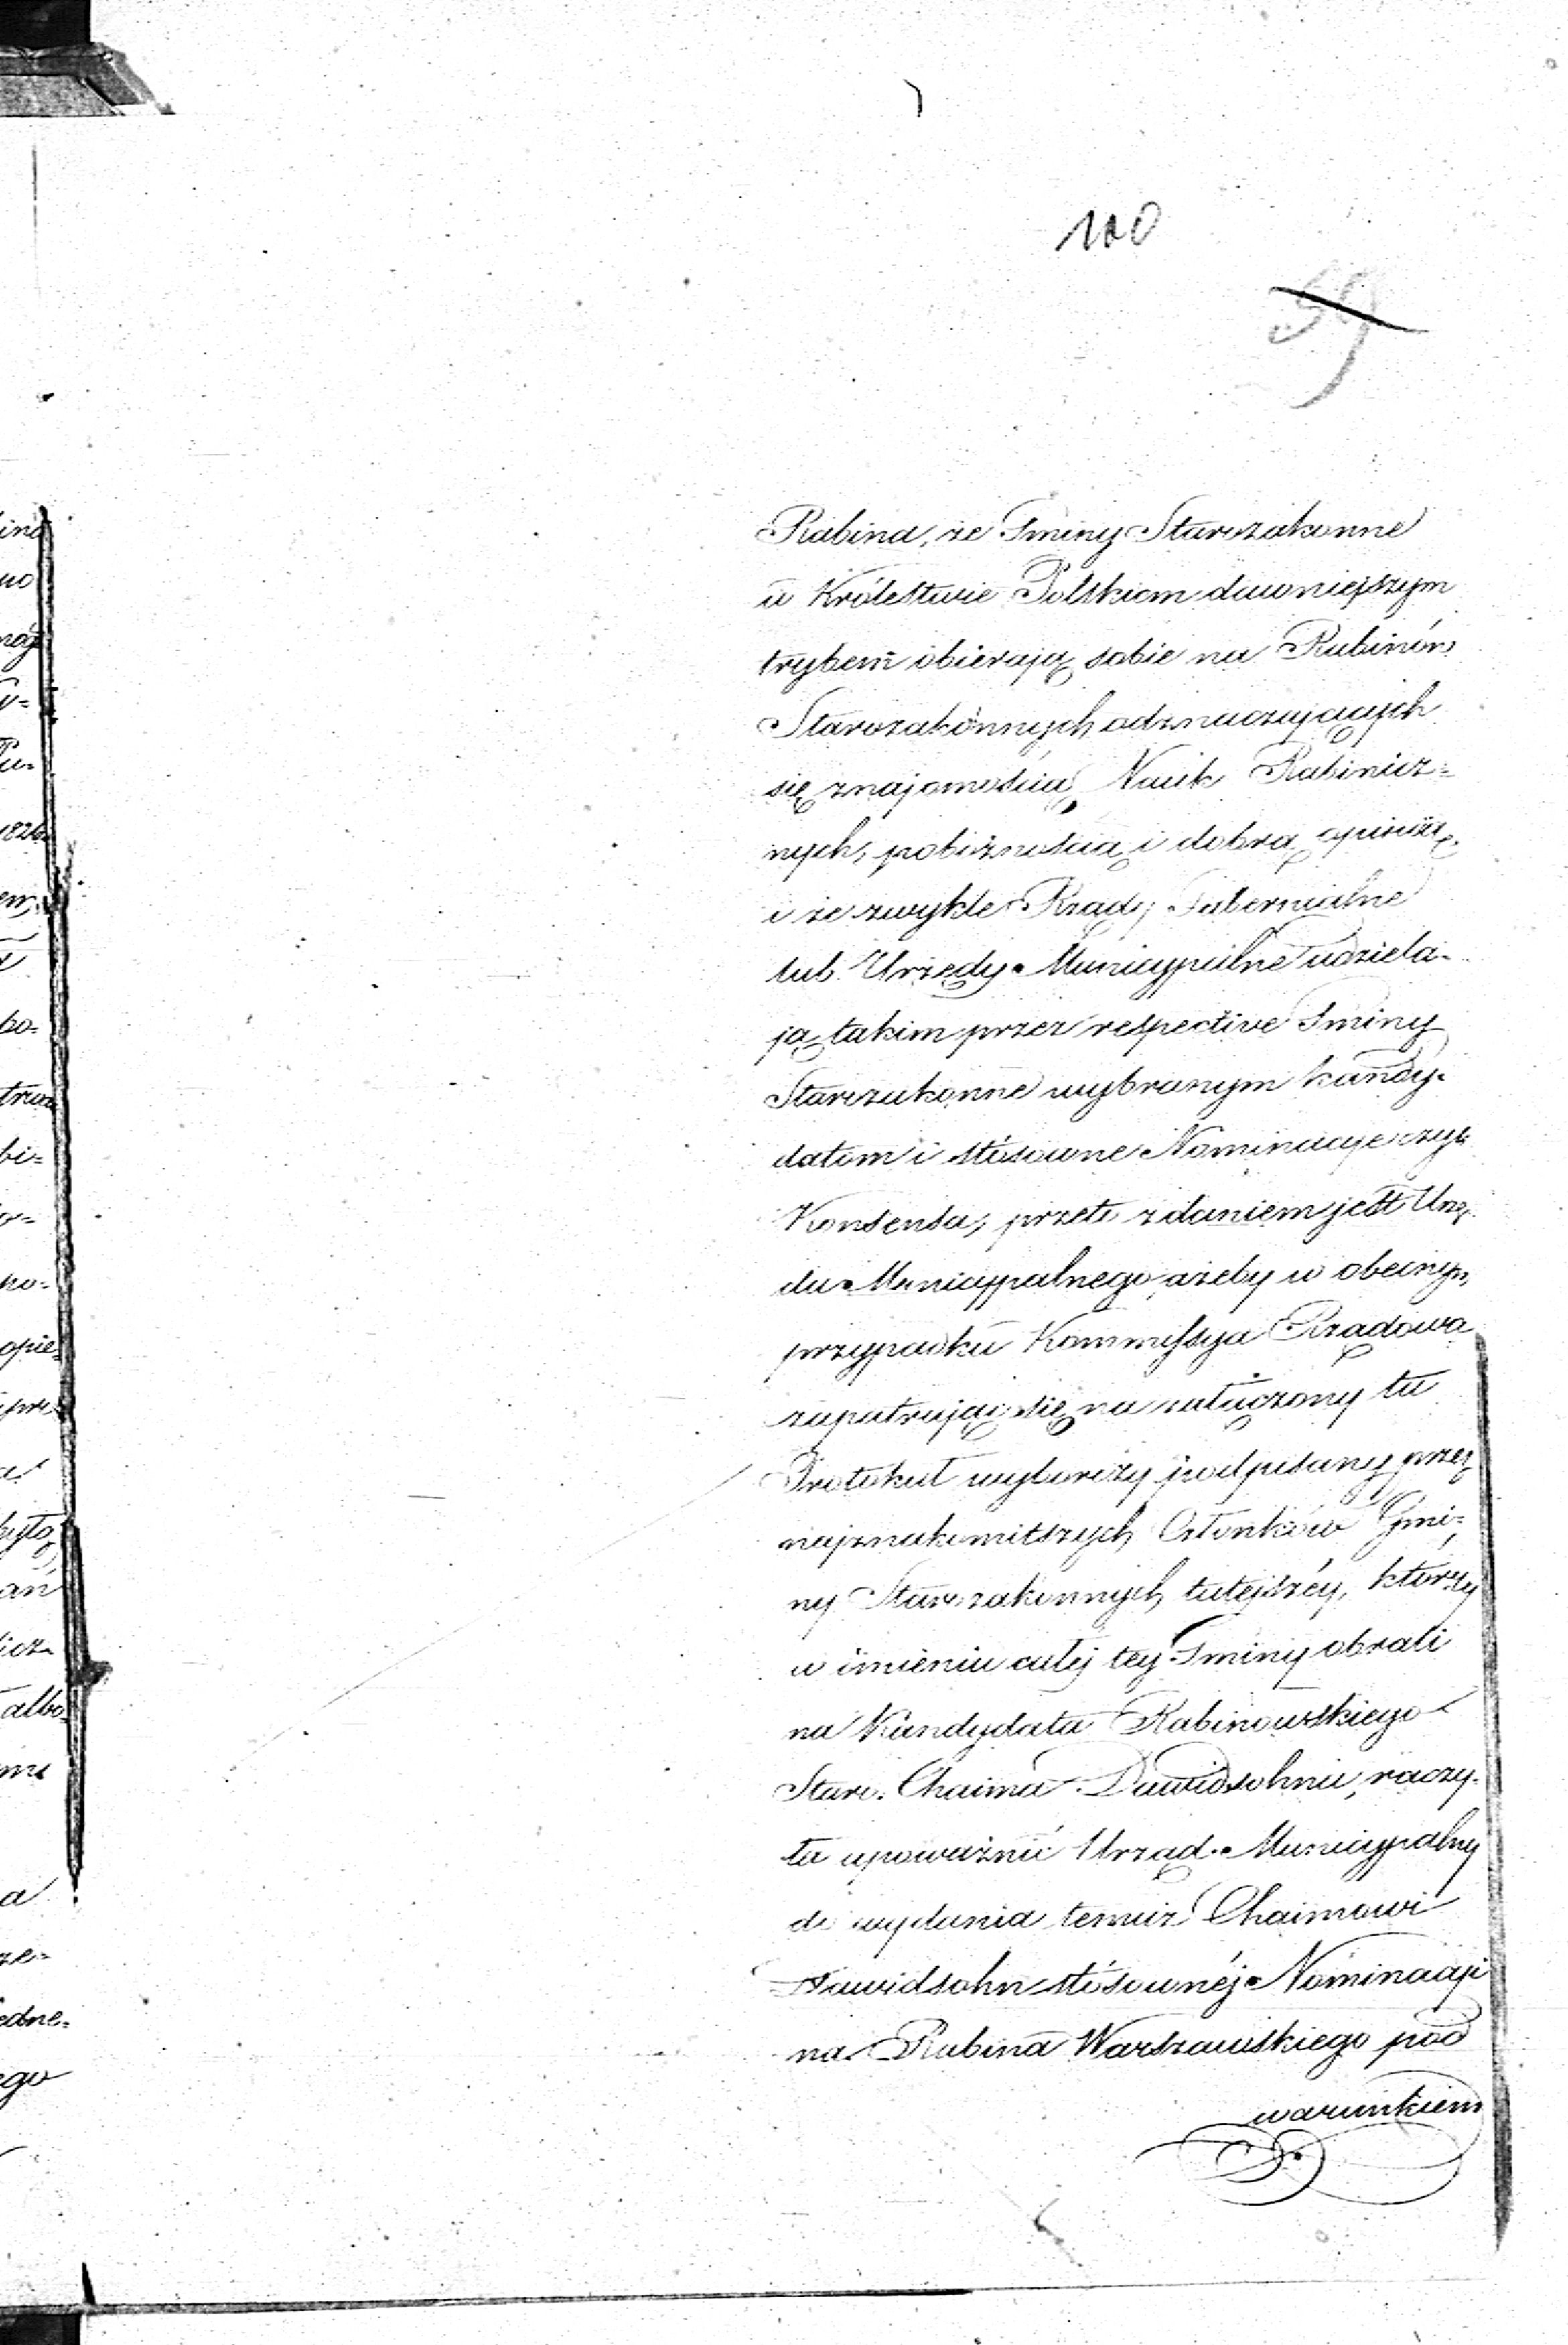 100
59
Rabina, że Gminy Starozakonne
w Królestwie Polskiem dawniejszym
trybem obierają sobie na Rabinów
Starozakonnych odznaczających
się znajomością Nauk Rabinicz=
nych, pobożnością i dobrą opiniią,
i że zwykle Rządy Gubernialne
lub Urzędy Municypalne udziela-
ją takim przez respective Gminy
Starozakonne wybranym kandy-
datom i stósowne Nominacye czyli
Konsensa; przeto zdaniem jest Urzę-
du Municypalnego, ażeby w obecnym
przypadku Kommissya Rządowa
zapatrując się na załączony tu
Protokuł wyborczy podpisany przez
najznakomitszych Członków Gmi=
ny Starozakonnych tutejszéy, którzy
w imieniu całej tey Gminy obrali
na Kandydata Rabinowskiego
Staro. Chaima Dawidsohna, raczy-
ła upoważnić Urząd Municypalny
do wydania temuż Chaimowi
Dawidsohn stósownéj Nominacyi
na Rabina Warszawskiego pod
warunkiem